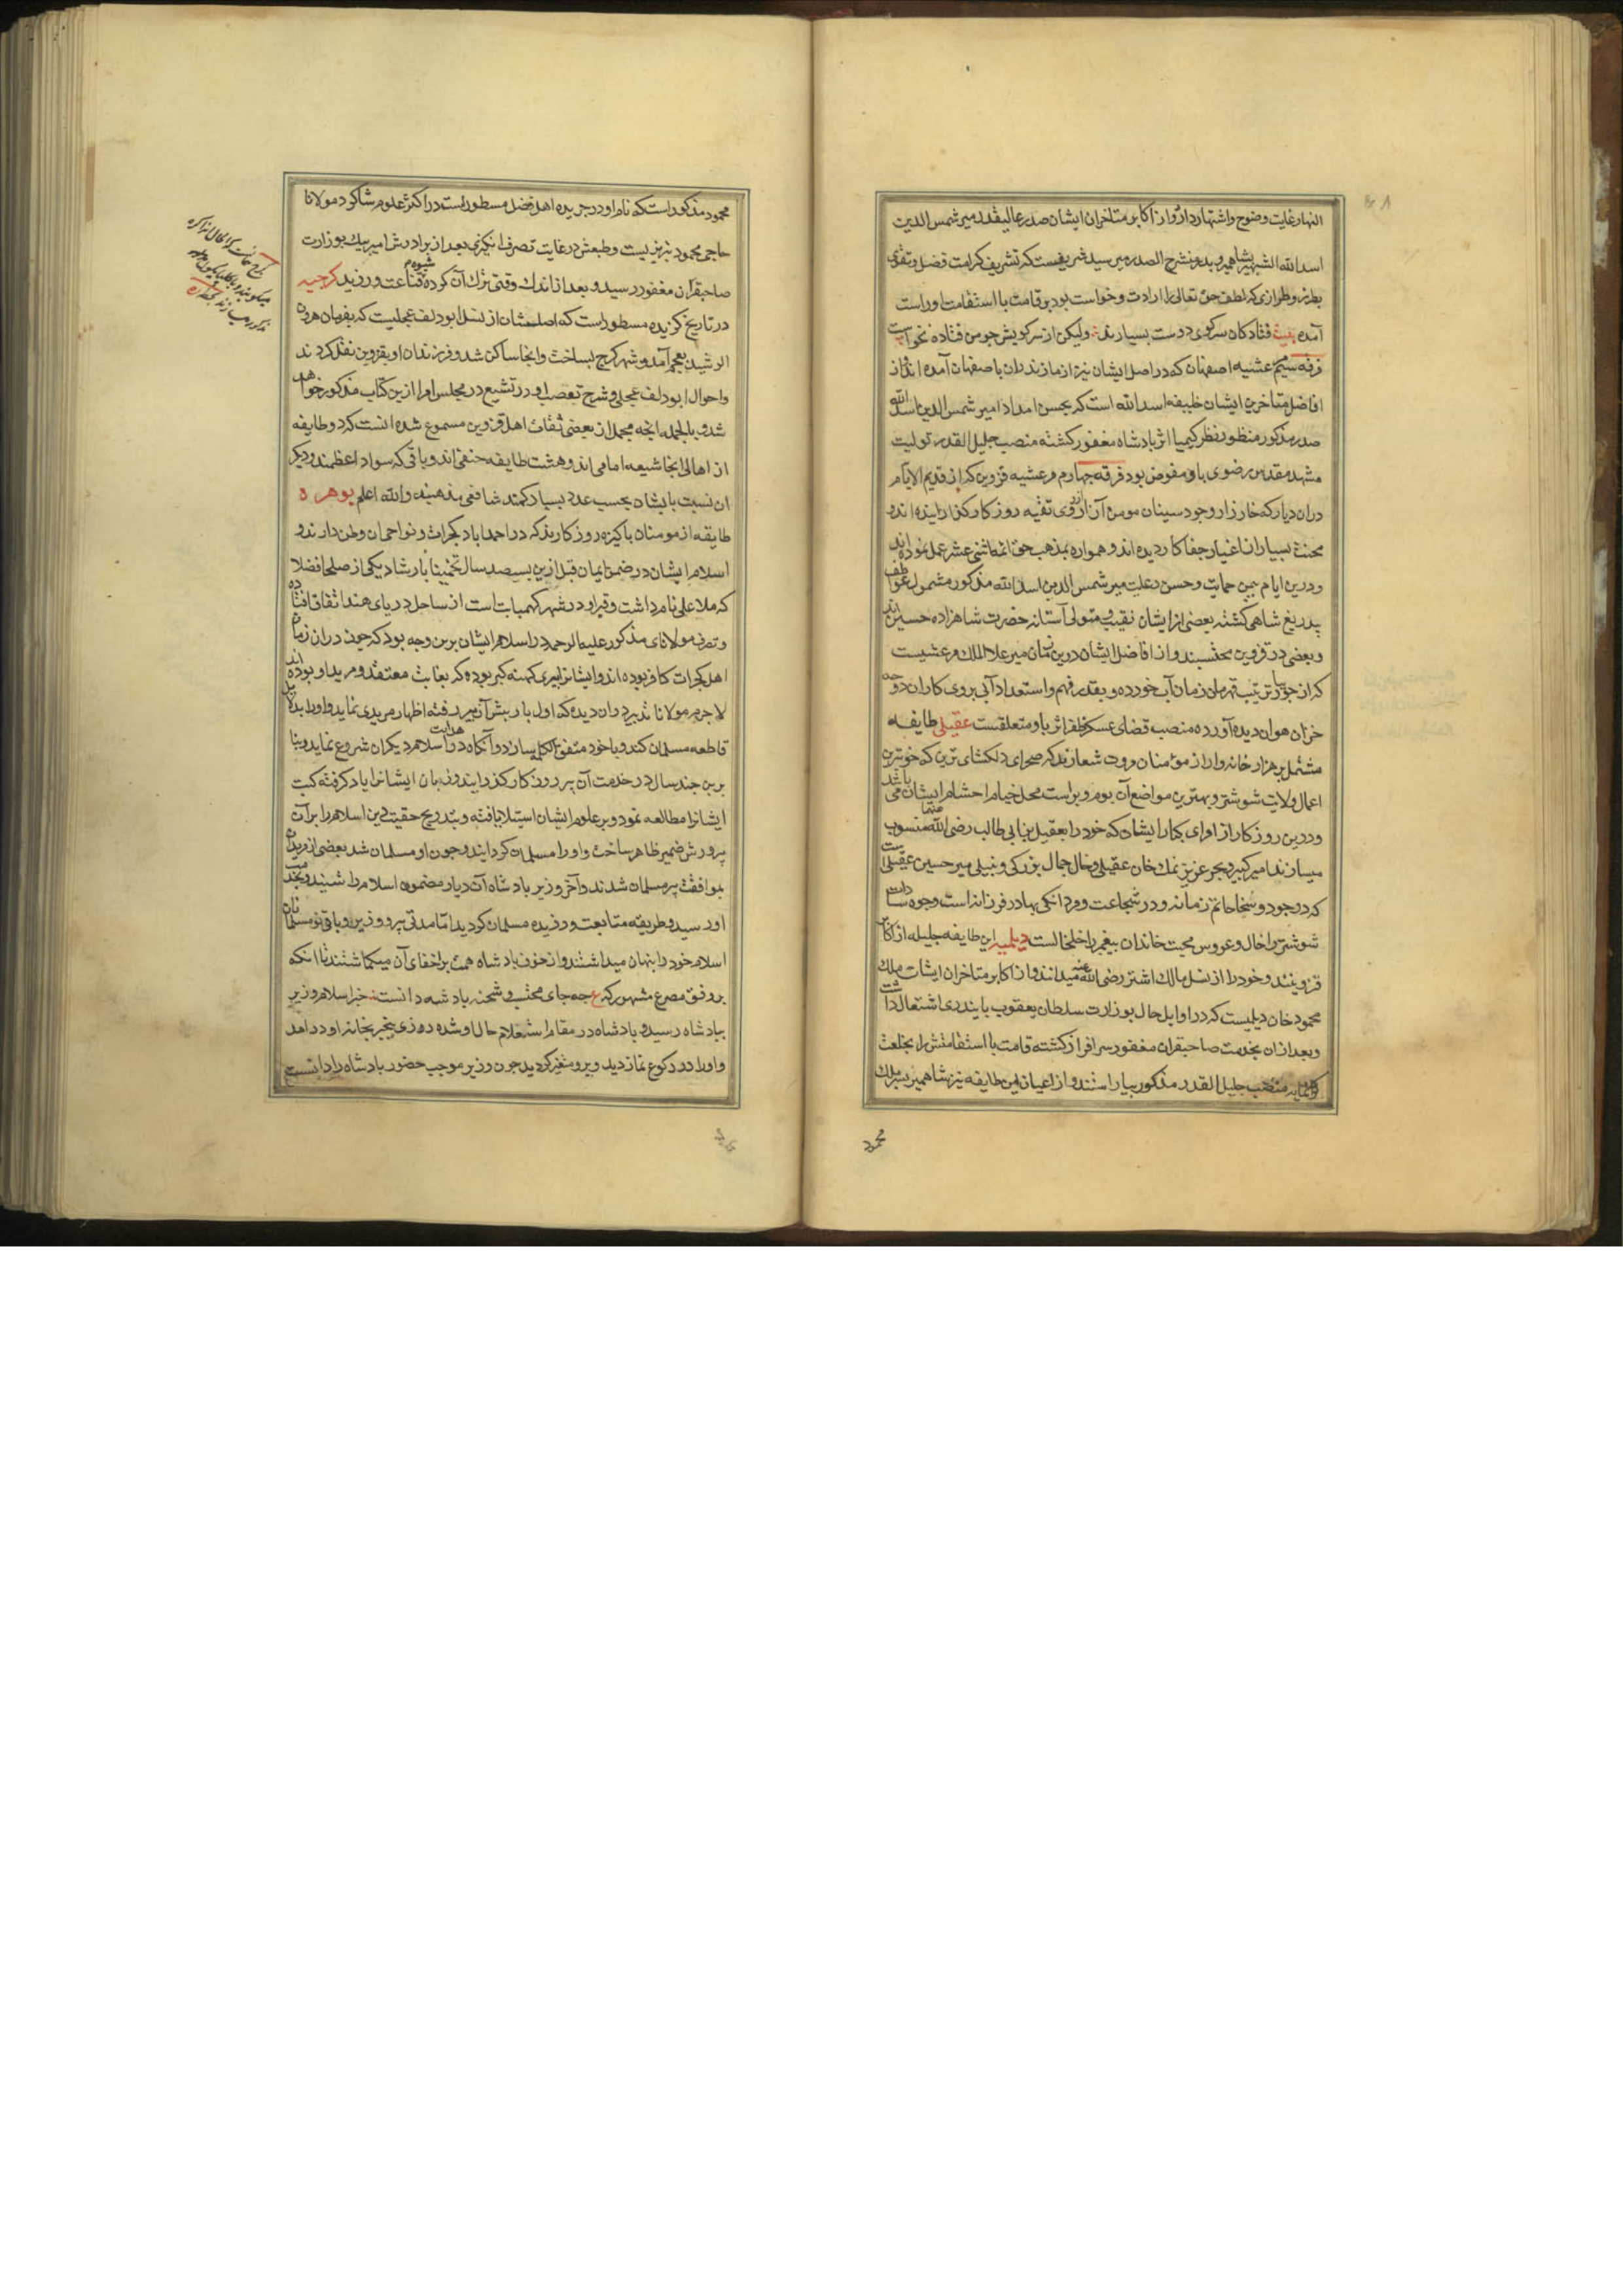 النهار غایت وضوح و اشتهار دارد و از اکابر متاخران ایشان صدر عالیقدر میر شمس الدین
اسد الله الشهیر بشاهمیر و بدر منشرح الصدر میر سید شریفست که تشریف کرامت فضل و تقوی
بطرز و طرازی که لطف حق تعالی را ارادت و خواست بود بر قامت با استقامت او راست
آمده بیت فتادکان سر کوی دوست بسیارند ولیکن از سر کویش چو من فتاده نخواست
فرقه سیم مرعشیه اصفهان که در اصل ایشان نیز از مازندران باصفهان آمده اند و از
افاضل متاخرین ایشان خلیفه اسد الله است که بحسن امداد امیر شمس الدین اسد الله
صدر مذکور منظور نظر کیمیا اثر پادشاه مغفور کشته منصب جلیل القدر تولیت
مشهد مقدس رضوی باو مفوض بود فرقه چهارم مرعشیه قزوین که از قدیم الایام
دران دیار که خارزار وجود سینان مومن آزار روی تقیه روزکار کذرانیده اند و
محنت بسیار از اغیار جفا کار دیده اند و همواره بمذهب حق ائمه اثنی عشر عمل نموده اند
و درین ایام بیمن حمایت و حسن رعایت میر شمس الدین اسد الله مذکور مشمول عواطف
بیدریغ شاهی کشته بعضی از ایشان نقیب و متولی آستانه حضرت شاهزاده حسین اند
و بعضی در قزوین محتسبند و از افاضل ایشان درین زمان میر علاء الملک مرعشیست
که از جویبار تربیت قهرمان زمان آب خورده و بقدر فهم و استعداد آبی بروی کاران دوحه
خزان هوان دیده آورده منصب قضای عسکر ظفر اثر باو متعلقست عقیلی طایفه
مشتمل بر هزار خانه وار از مؤمنان مروت شعارند که صحرای دلکشای ترین که خوبترین
اعمال ولایت شوشتر و بهترین مواضع آن بوم و بر است محل خیام احشام ایشان می باشد
و درین روزکار از امرای کبار ایشان که خود را بعقیل بن ابی طالب رضی الله عنهما منسوب
میسازند امیر کبیر و بحر عزیز نمک خان عقیلی و خال جمال بزرکی و نبیلی میر حسین عقیلی است
که در جود و سخا حاتم زمانه و در شجاعت و مردانکی بهادر فرزانه است وجوه سادات
شوشتر را خال و عروس محبت خاندان پیغمبر را خلخالست دیلمیه این طایفه جلیله از اکابر
قزوینند و خود را از نسل مالک اشتر رضی الله عنه میدانند و از اکابر متاخران ایشان ملک
محمود خان دیلمیست که در اوایل حال بوزارت سلطان یعقوب بایندری اشتغال داشت
و بعد ازان بخدمت صاحبقران مغفور سرافراز کشته قامت با استقامتش را بخلعت
کرانمایه منصب جلیل القدر مذکور بیاراستند و از اعیان این طایفه نیز شاهمیر بن ملک
محمود
محمود مذکور است که نام او در جریده اهل فضل مسطور است در اکثر علوم شاکرد مولانا
حاجی محمود تبریزیست و طبعش در غایت تصرف انکیزی بعد از برادرش امیر بیک بوزارت
صاحبقران مغفور رسید و بعد از اندک وقتی ترک آن کرده شیوه قناعت ورزید کرجیه
در تاریخ کزیده مسطور است که اصلشان از نسل ابو دلف عجلیست که بفرمان هرون
الرشید بعجم آمد و شهر کرج بساخت و انجا ساکن شد و فرزندان او بقزوین نقل کردند
و احوال ابو دلف عجلی و شرح تعصب او در تشیع در مجلس امرا ازین کتاب مذکور خواهد
شد و بالجمله انچه مجملا از بعضی ثقات اهل قزوین مسموع شده انست که دو طایفه
از اهالی انجا شیعه امامی اند و هشت طایفه حنفی اند و باقی که سواد اعظمند و دیکر
ان نسبت بایشان بحسب عدد بسیار کمند شافعی مذهبند والله اعلم بوهره
طایفه از مومنان پاکیزه روزکارند که در احمد اباد کجرات و نواحی آن وطن دارند و
اسلام ایشان در ضمن ایمان قبل ازین بسیصد سال تخمینا بارشاد یکی از صلحا فضلا
که ملا علی نام داشت و قبر او در شهر کهمبات است از ساحل دریای هند اتفاق افتاده
و تصرف مولانای مذکور علیه الرحمه در اسلام ایشان برین وجه بود که چون دران زمان
اهل کجرات کافر بوده اند و ایشانرا پیری کهنه کبر بوده که بغایت معتقد و مرید او بوده اند
لاجرم مولانا تدبیر دران دیده که اول بار پیش آن پیر رفته اظهار مریدی نماید و او را بدلایل
قاطعه مسلمان کند و با خود متفق الکلمه سازد و آنکاه در هدایت اسلام دیکران شروع نماید و بنا
برین چند سال در خدمت آن پیر روزکار کذرانیده و زبان ایشانرا یاد کرفته کتب
ایشانرا مطالعه نمود و بر علوم ایشان استیلا یافته و بتدریج حقیت دین اسلام را بر آن
پیر روشن ضمیر ظاهر ساخت و او را مسلمان کردانید و چون او مسلمان شد بعضی از مریدان
بموافقت پیر مسلمان شدند و آخر وزیر پادشاه آن دیار مضمون اسلام را شنید و بخدمت
او رسید و طریقه متابعت ورزیده مسلمان کردید اما مدتی پیر و وزیر و باقی نو مسلمانان
اسلام خود را پنهان میداشتند و از خوف پادشاه همت بر اخفای آن میکماشتند تا انکه
بر وفق مصرع مشهور که ع چه جای محتسب و شحنه پادشه دانست خبر اسلام وزیر
بپادشاه رسید و پادشاه در مقام استعلام حال او شده روزی بیخبر بخانه او در امد
و او را در رکوع نماز دید و برو متغیر کردید چون وزیر موجب حضور پادشاه را دانست